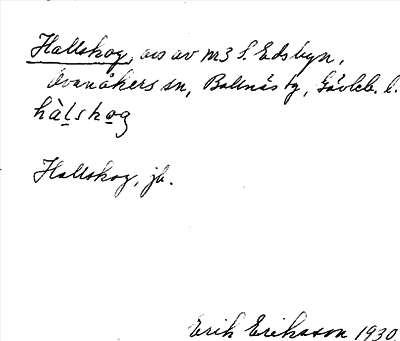 Hallskog, avs av nr3 S. Edsbyn,
Ovanåkers sn, Bollnäs tg, Gävleb. l.
hàlskog
Hallskog, jb.
Erik Eriksson 1930.